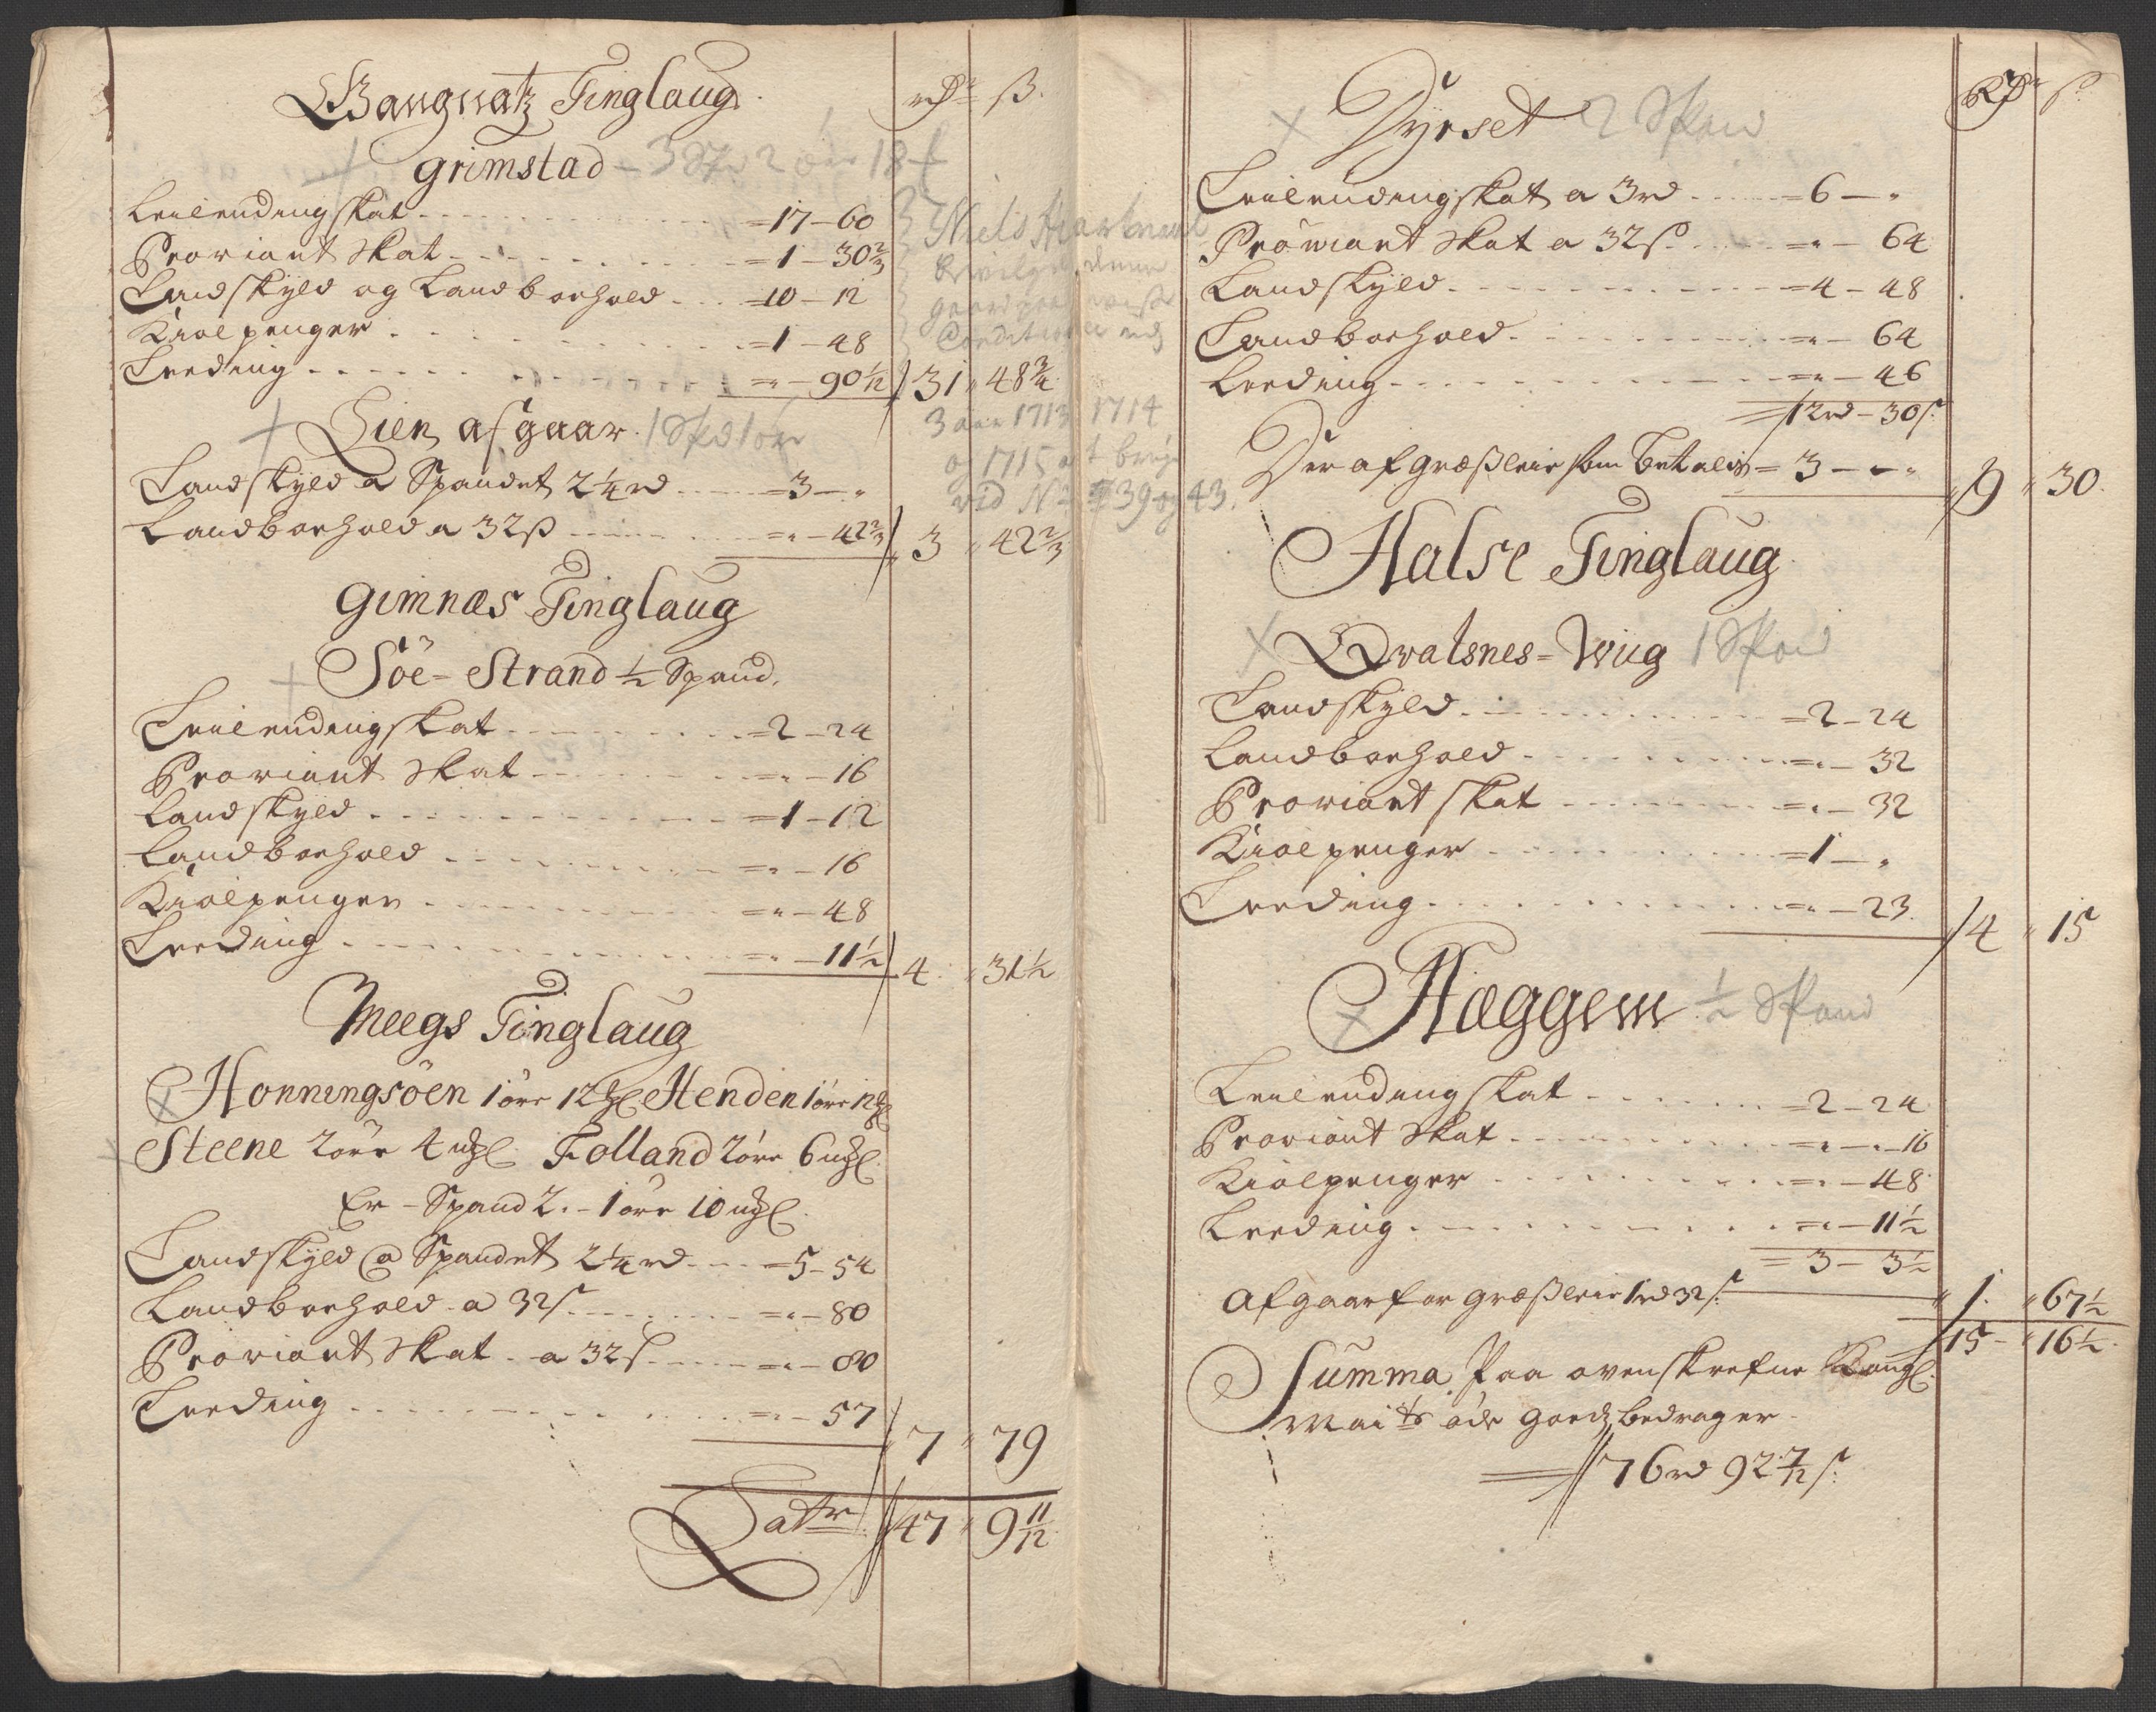 Bangnatz Tinglaug. rdr ß.
grimstad - 3 Spd 2 öre 18
Leilendingskat - - - = 17 - 60
Proviant Skat - - - = 1 - 30 2/3
Landskyld og Landboehold - - = 10 - 12
Kiolpenger - - - = 1 - 48
Leeding - - - = „ - 90 1/12 31 „ 48 3/4
Niels
Condition
3 aar 1713, 1714
og 1715
vid No 39 og 43.
Lien afgaar. 1 Spd 1 öre
Landskyld a Spandet 2 1/4 rd - - = 3 - „
Landboehold a 32 ß - - - = „ - 42 2/3 3 „ 42 2/3
Gimnæs Tinglaug
Söe-Strand 1/2 Spand.
Leilendingskat - - - = 2 - 24
Proviant Skat - - - = „ - 16
Landskyld - - - = 1 - 12
Landboehold - - - = „ - 16
Kiolpenger - - - = „ - 48
Leeding - - - = „ - 11 1/2 4 „ 31 1/2
Meegs Tinglaug
Honningsöen 1 öre 12 Henden 1 öre 12
Steene 2 öre 4 mȝl. Folland 2 öre 6 mȝl.
Er - Spand 2. - 1 öre 10 mȝl.
Landskyld a Spandet 2 1/4 rd - - = 5 - 54
Landboehold a 32 ß - - - = „ - 80
Proviant Skat a 32 ß - - - = „ - 80
Leeding - - - = „ - 57 7 „ 79
Latr 47 „ 9 11/12
Dyrset 2 Spand Rdr ß
Leilendingskat a 3 rd - - - = 6 - „
Proviant Skat a 32 ß - - - = „ - 64
Landskyld - - - = 4 - 48
Landboehold - - - = „ - 64
Leeding - - - = „ - 46
12 rd - 30 ß.
Der af græsleie som betales = 3 - „ 9 „ 30.
Halse Tinglaug
Qvatsnes-Wug 1 Spand
Landskyld - - - = 2 - 24
Landboehold - - - = „ - 32
Proviant skat - - - = „ - 32
Kiolpenger - - - = 1 - „
Leeding - - - = „ - 23. 4 „ 15
Hæggem 1/2 Spand
Leilendingskat - - - = 2 - 24
Proviant Skat - - - = „ - 16
Kiolpenger - - - = „ - 48
Leeding - - - = „ - 11 1/2
= 3 - 3 1/2
Afgaar for græsleie 1 rd 32 ß. „ 1. „ 67 1/2
15 - „ 16 1/2
Summa Paa ovenskrefne Kongl.
Maits öde goeds bedrager -
76 rd 92 7/12 ß.